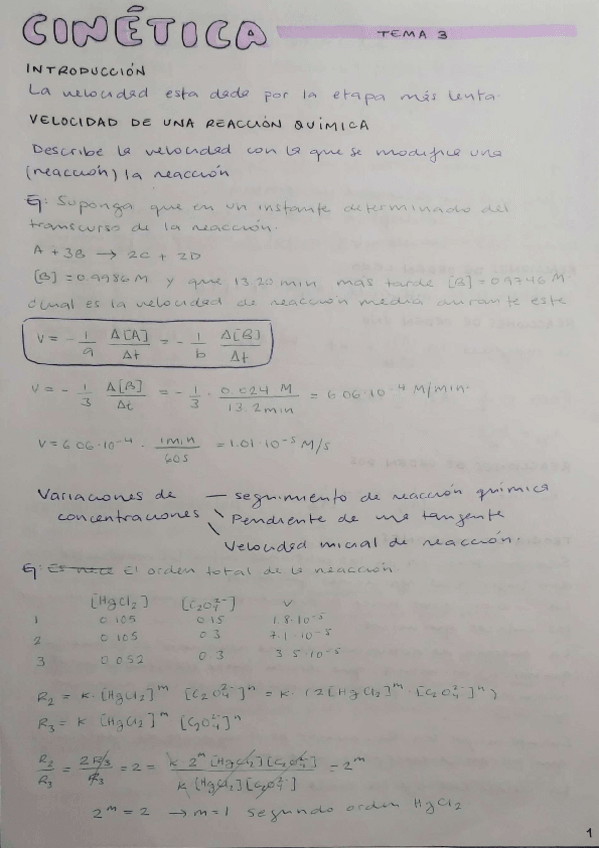 CINÉTICA TEMA 3
INTRODUCCIÓN
La velocidad esta dada por la etapa más lenta.
VELOCIDAD DE UNA REACCIÓN QUÍMICA
Describe la velocidad con la que se modifica una
(reacción) la reacción
Ej: Suponga que en un instante determinado del
transcurso de la reacción.
A + 3B → 2C + 2D
[B] = 0.9986 M y que 13.20 min más tarde [B] = 0.9746 M
¿Cual es la velocidad de reacción media durante este
V = - 1/a Δ[A]/Δt = - 1/b Δ[B]/Δt
V = - 1/3 Δ[B]/Δt = - 1/3 · 0.024 M/13.2min = 6.06·10⁻⁴ M/min.
V = 6.06·10⁻⁴ · 1min/60s = 1.01·10⁻⁵ M/s
Variaciones de — seguimiento de reacción química
concentraciones \ Pendiente de una tangente
\ Velocidad inicial de reacción.
Ej: El orden total de la reacción
[HgCl₂] [C₂O₄²⁻] V
1 0.105 0.15 1.8·10⁻⁵
2 0.105 0.3 7.1·10⁻⁵
3 0.052 0.3 3.5·10⁻⁵
R₂ = K·[HgCl₂]ᵐ [C₂O₄²⁻]ⁿ = K·(2[HgCl₂]ᵐ·[C₂O₄²⁻]ⁿ)
R₃ = K [HgCl₂]ᵐ [C₂O₄²⁻]ⁿ
R₂/R₃ = 2R₃/R₃ = 2 = K·2ᵐ[HgCl₂][C₂O₄²⁻]/K[HgCl₂][C₂O₄²⁻] = 2ᵐ
2ᵐ = 2 → m = 1 segundo orden HgCl₂
1